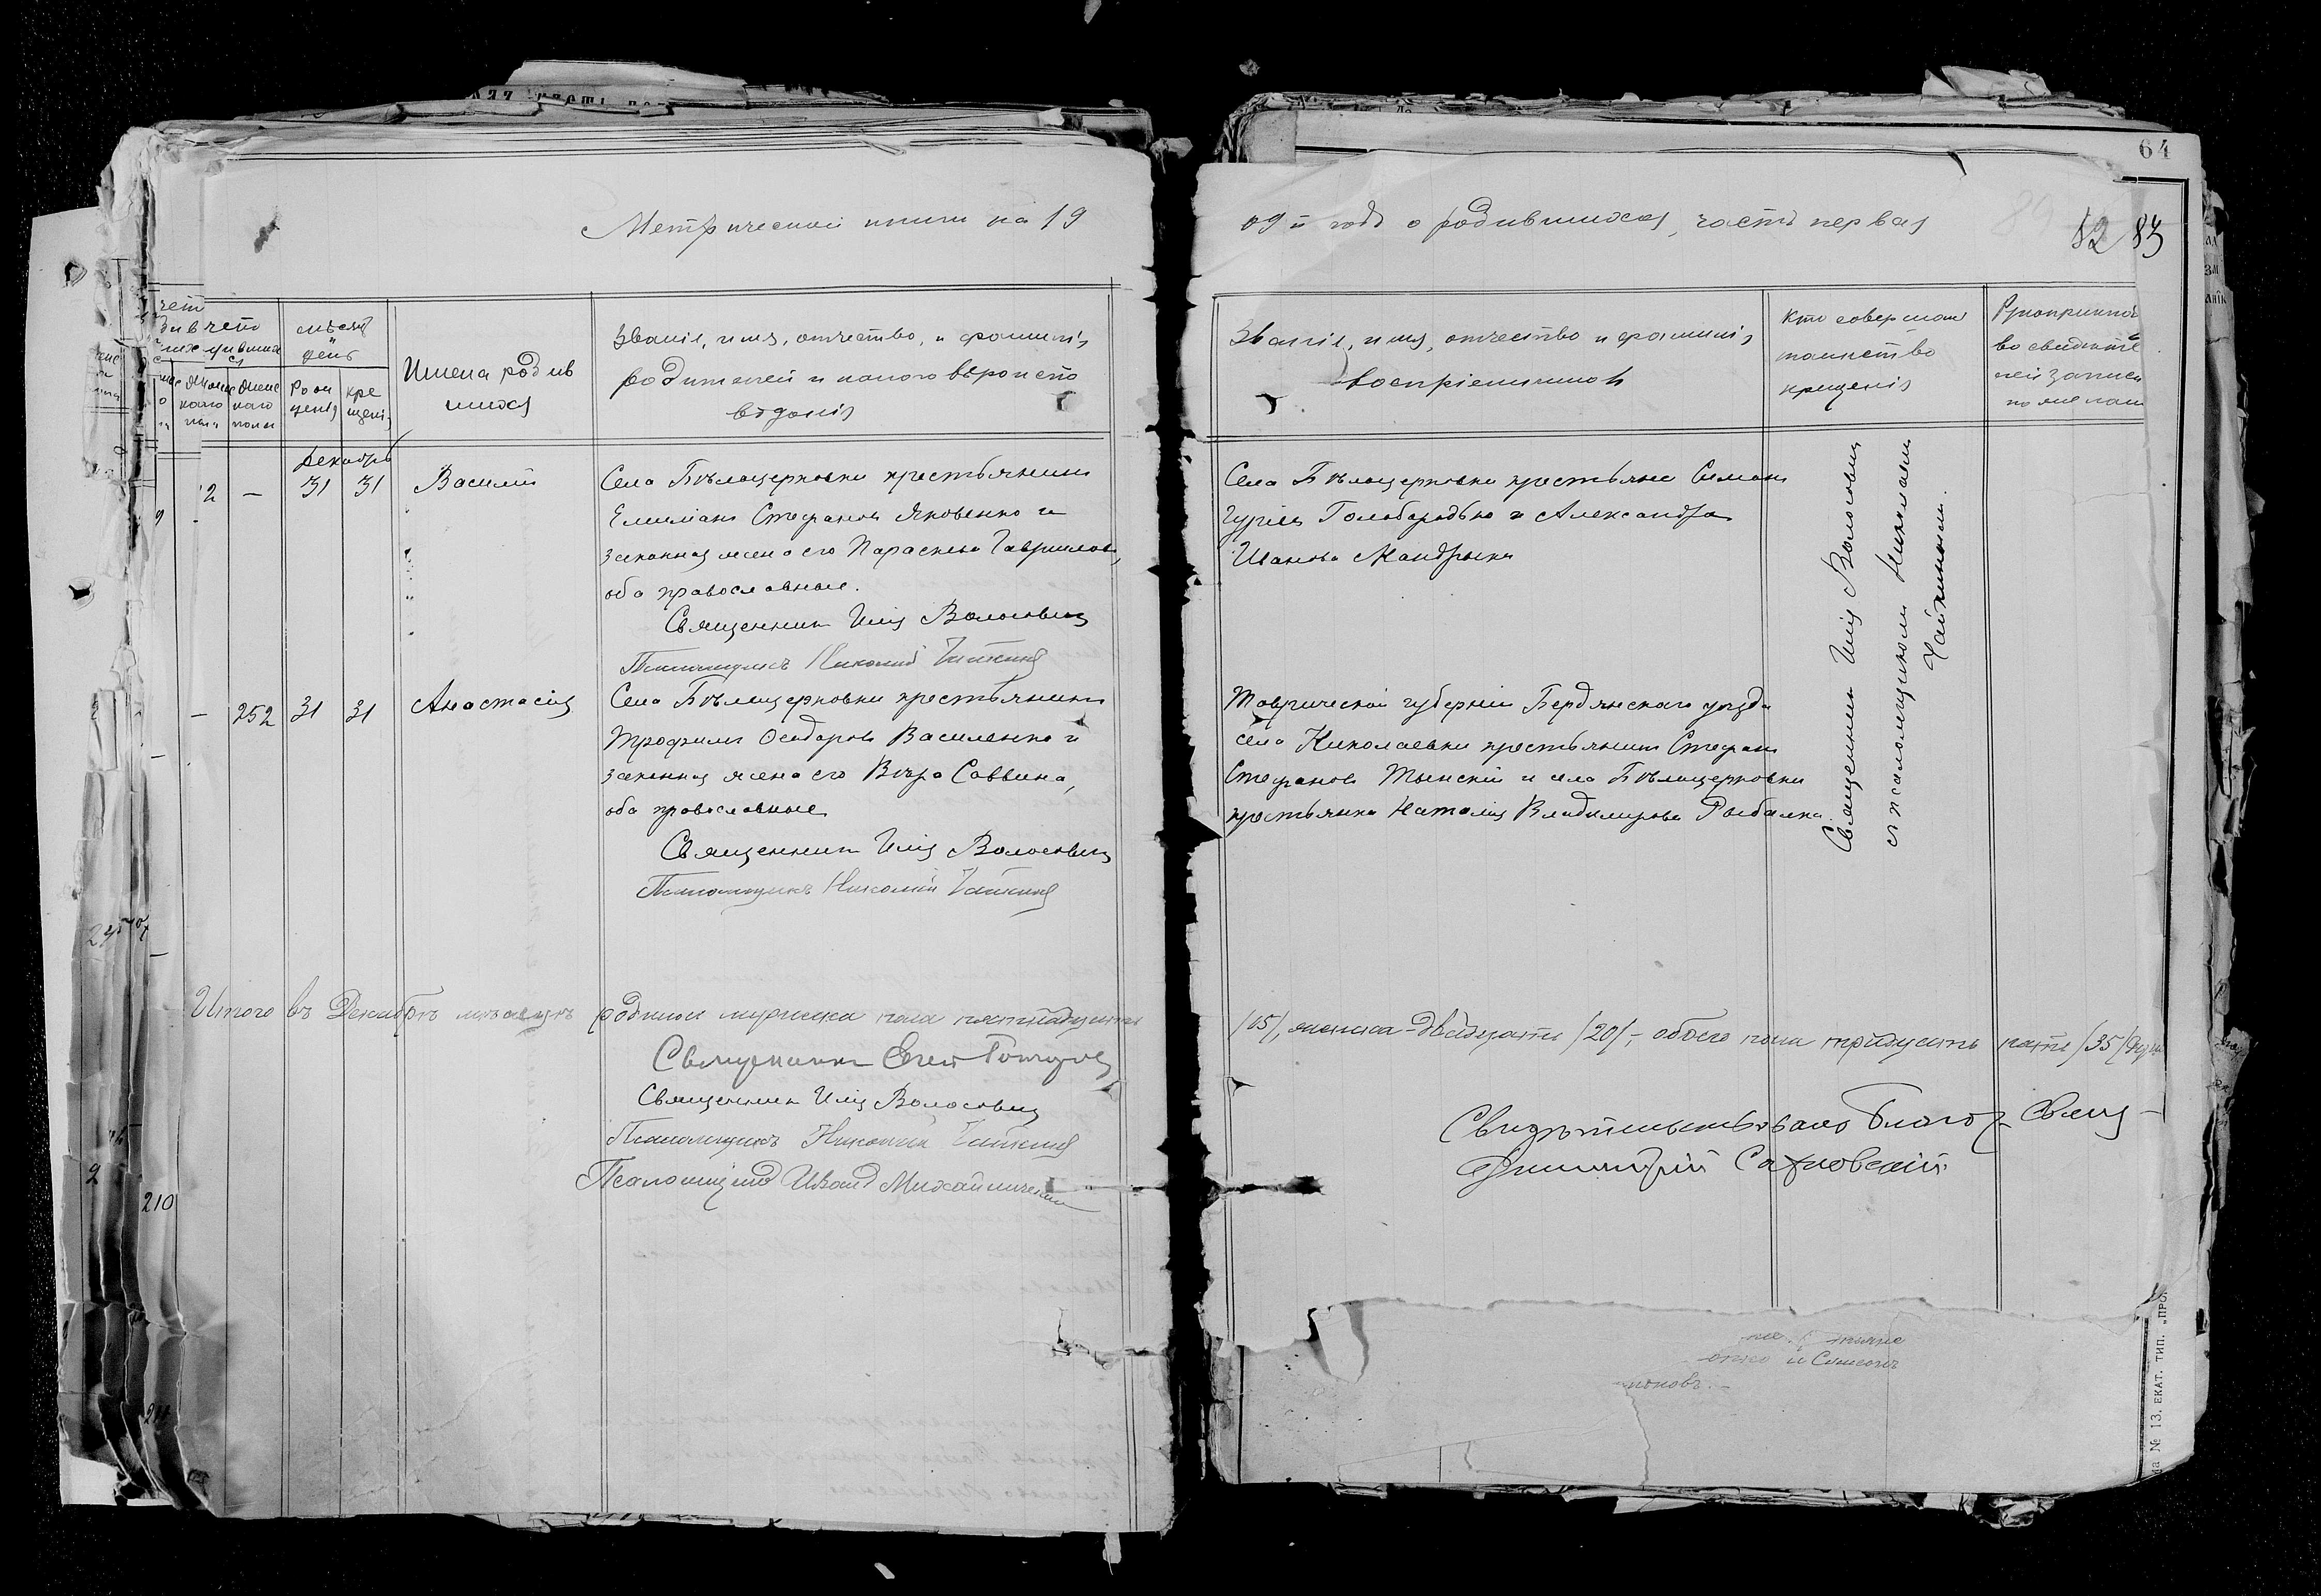 64
Метрической книги на 19
09й годъ о родившихся, часть первая
82 83
чет
мѣсяцъ
и
день
Имена родив
шихся
Званіе, имя, отчество, и фамилія
родителей и какого вѣроиспо
вѣданія
Званіе, имя, отчество и фамилія
воспріемниковъ
Кто совершалъ
таинство
крещенія
Рукоприклад
во свидѣте
лей записи
по желан
Мужс
каго
пола
Женс
каго
пола
Рож
денія
кре
щені
Декабрь
2 — 31 31 Василій
Села Бѣлоцерковки крестьянинъ
Емиліанъ Стефановъ Яковенко и
законная жена его Параскева Гавриилова,
оба православные.
Священникъ Илія Волосовичъ
Псаломщикъ Николай Чайкинъ
Села Бѣлоцерковки крестьяне Симонъ
Гуріевъ Голобородько и Александра
Иванова Мандрыка
Священникъ Илія Волосовичъ
съ псаломщикомъ Николаемъ
Чайкинымъ.
— 252 31 31 Анастасія
Села Бѣлоцерковки крестьянинъ
Трофимъ Ѳеодоровъ Василенко и
законная жена его Вѣра Саввина,
оба православные
Священникъ Илія Волосовичъ
Псаломщикъ Николай Чайкинъ
Таврической губерніи Бердянскаго уѣзда
села Николаевки крестьянинъ Стефанъ
Стефановъ Тынскій и села Бѣлоцерковки
крестьянка Наталія Владимирова Рыбалка.
Итого въ Декабрѣ мѣсяцѣ родилось мужска пола пятнадцать
/15/, женска – двадцать /20/, – обоего пола тридцать пять /35/ душ
Священникъ
Священникъ Илія Волосовичъ
Псаломщикъ Николай Чайкинъ
Псаломщикъ Иванъ Михайличенко
Свидѣтельствовалъ Благоч. Свящ
Димитрій
210
и Симеонъ
на № 13. ЕКАТ. ТИП. „ПРО